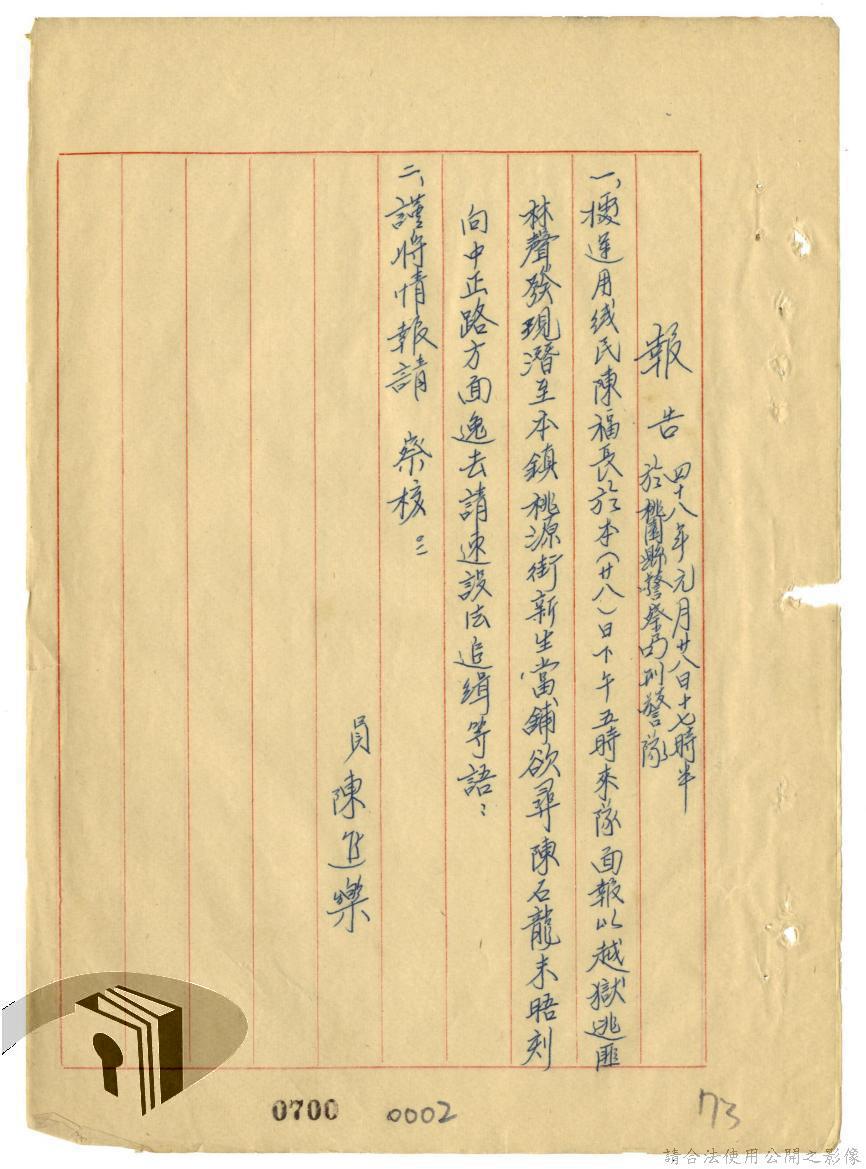 報告
四十八年元月廿八日十七時半
於桃園縣警察局刑警隊
一、據運用線民陳福長於本(廿八)日下午五時來隊面報以越獄逃匪
林聲發現潛至本鎮桃源街新生當鋪欲尋陳石龍未晤刻
向中正路方面逸去請速設法追緝等語:
二、謹將情報請 察核:
員陳進樂
0700 0002
73
請合法使用公開之影像